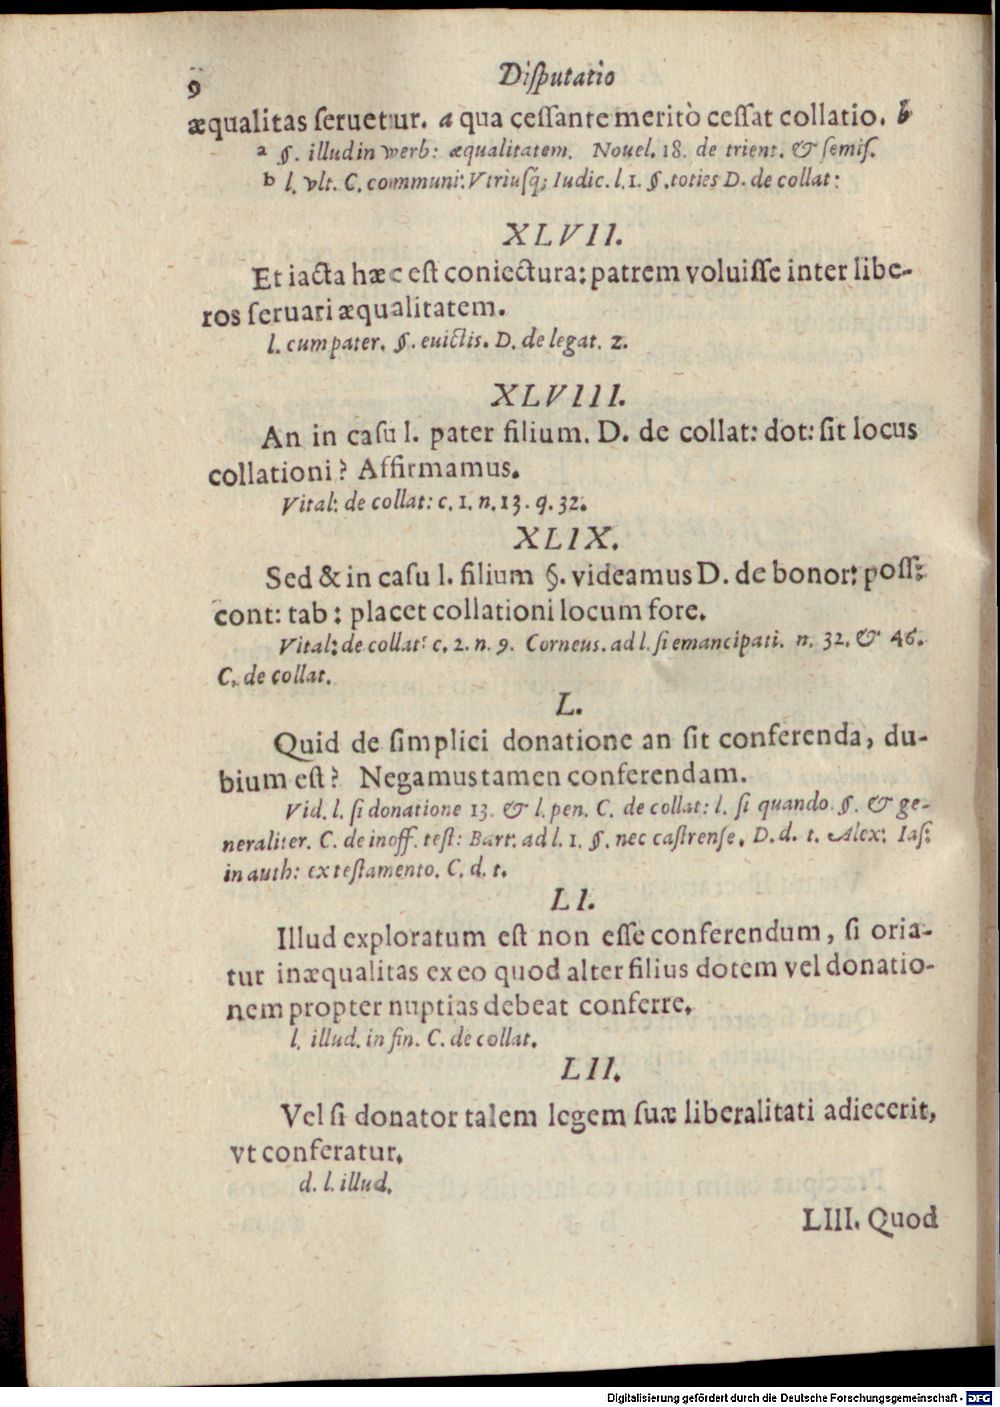 9
Disputatio
æqualitas ſeruetur. a qua ceſſante meritò ceſſat collatio. b
a §. illud in verb: æqualitatem. Nouel. 18. de trient. & ſemiſ.
b l. vlt. C. communi: Vtriuſq; Iudic. l. 1. §. toties D. de collat:
XLVII.
Et iacta hæc eſt coniectura: patrem voluiſſe inter libe-
ros ſeruari æqualitatem.
l. cum pater. §. euictis. D. de legat. 2.
XLVIII.
An in caſu l. pater filium. D. de collat: dot: ſit locus
collationi? Affirmamus.
Vital: de collat: c. 1. n. 13. q. 32.
XLIX.
Sed & in caſu l. filium §. videamus D. de bonor: poſſ:
cont: tab: placet collationi locum fore.
Vital: de collat: c. 2. n. 9. Corneus. ad l. ſi emancipati. n. 32. & 46.
C. de collat.
L.
Quid de ſimplici donatione an ſit conferenda, du-
bium eſt? Negamus tamen conferendam.
Vid. l. ſi donatione 13. & l. pen. C. de collat: l. ſi quando. §. & ge-
neraliter. C. de inoff. teſt: Bart: ad l. 1. §. nec caſtrenſe. D. d. t. Alex: Iaſ:
in auth: ex teſtamento. C. d. t.
LI.
Illud exploratum eſt non eſſe conferendum, ſi oria-
tur inæqualitas ex eo quod alter filius dotem vel donatio-
nem propter nuptias debeat conferre.
l. illud. in fin. C. de collat.
LII.
Vel ſi donator talem legem ſuæ liberalitati adiecerit,
vt conferatur.
d. l. illud.
LIII. Quod
Digitalisierung gefördert durch die Deutsche Forschungsgemeinschaft - DFG